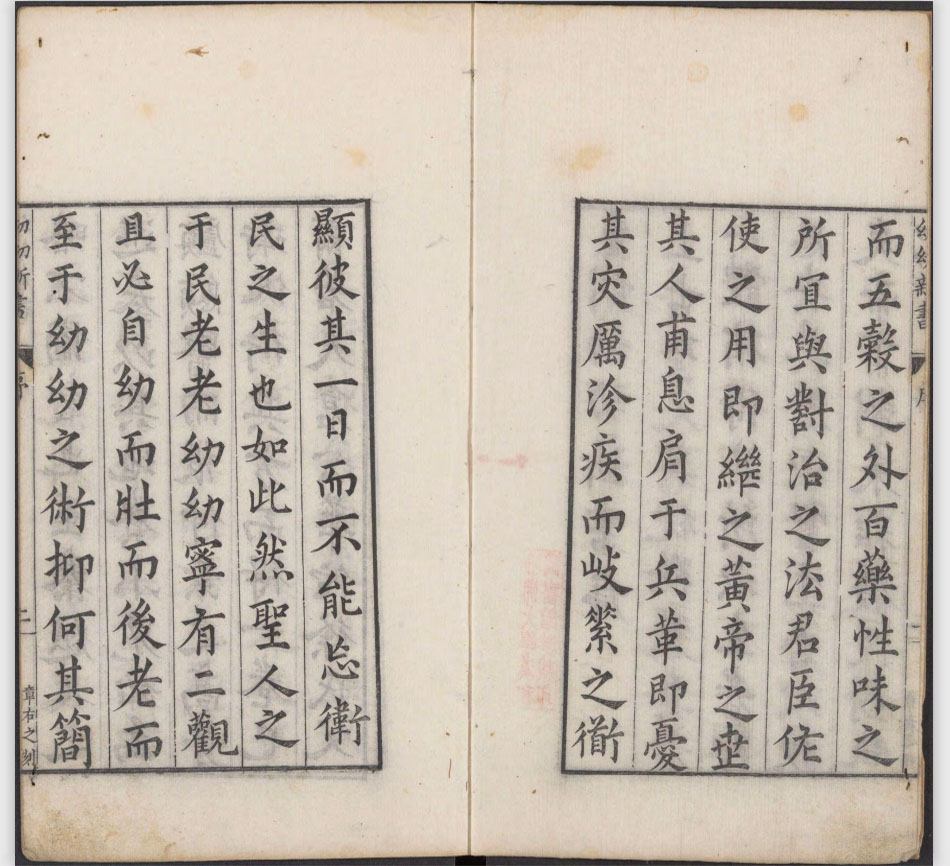 幼幼新書
序
而五穀之外百藥性味之
所宜與對治之法君臣佐
使之用即繼之黃帝之世
其人甫息肩于兵革即憂
其灾厲沴疾而岐黃之衜
顯彼其一日而不能忘衛
民之生也如此然聖人之
于民老老幼幼寧有二觀
且必自幼而壯而後老而
至于幼幼之術抑何其簡
幼幼新書
序
二
章右之刻